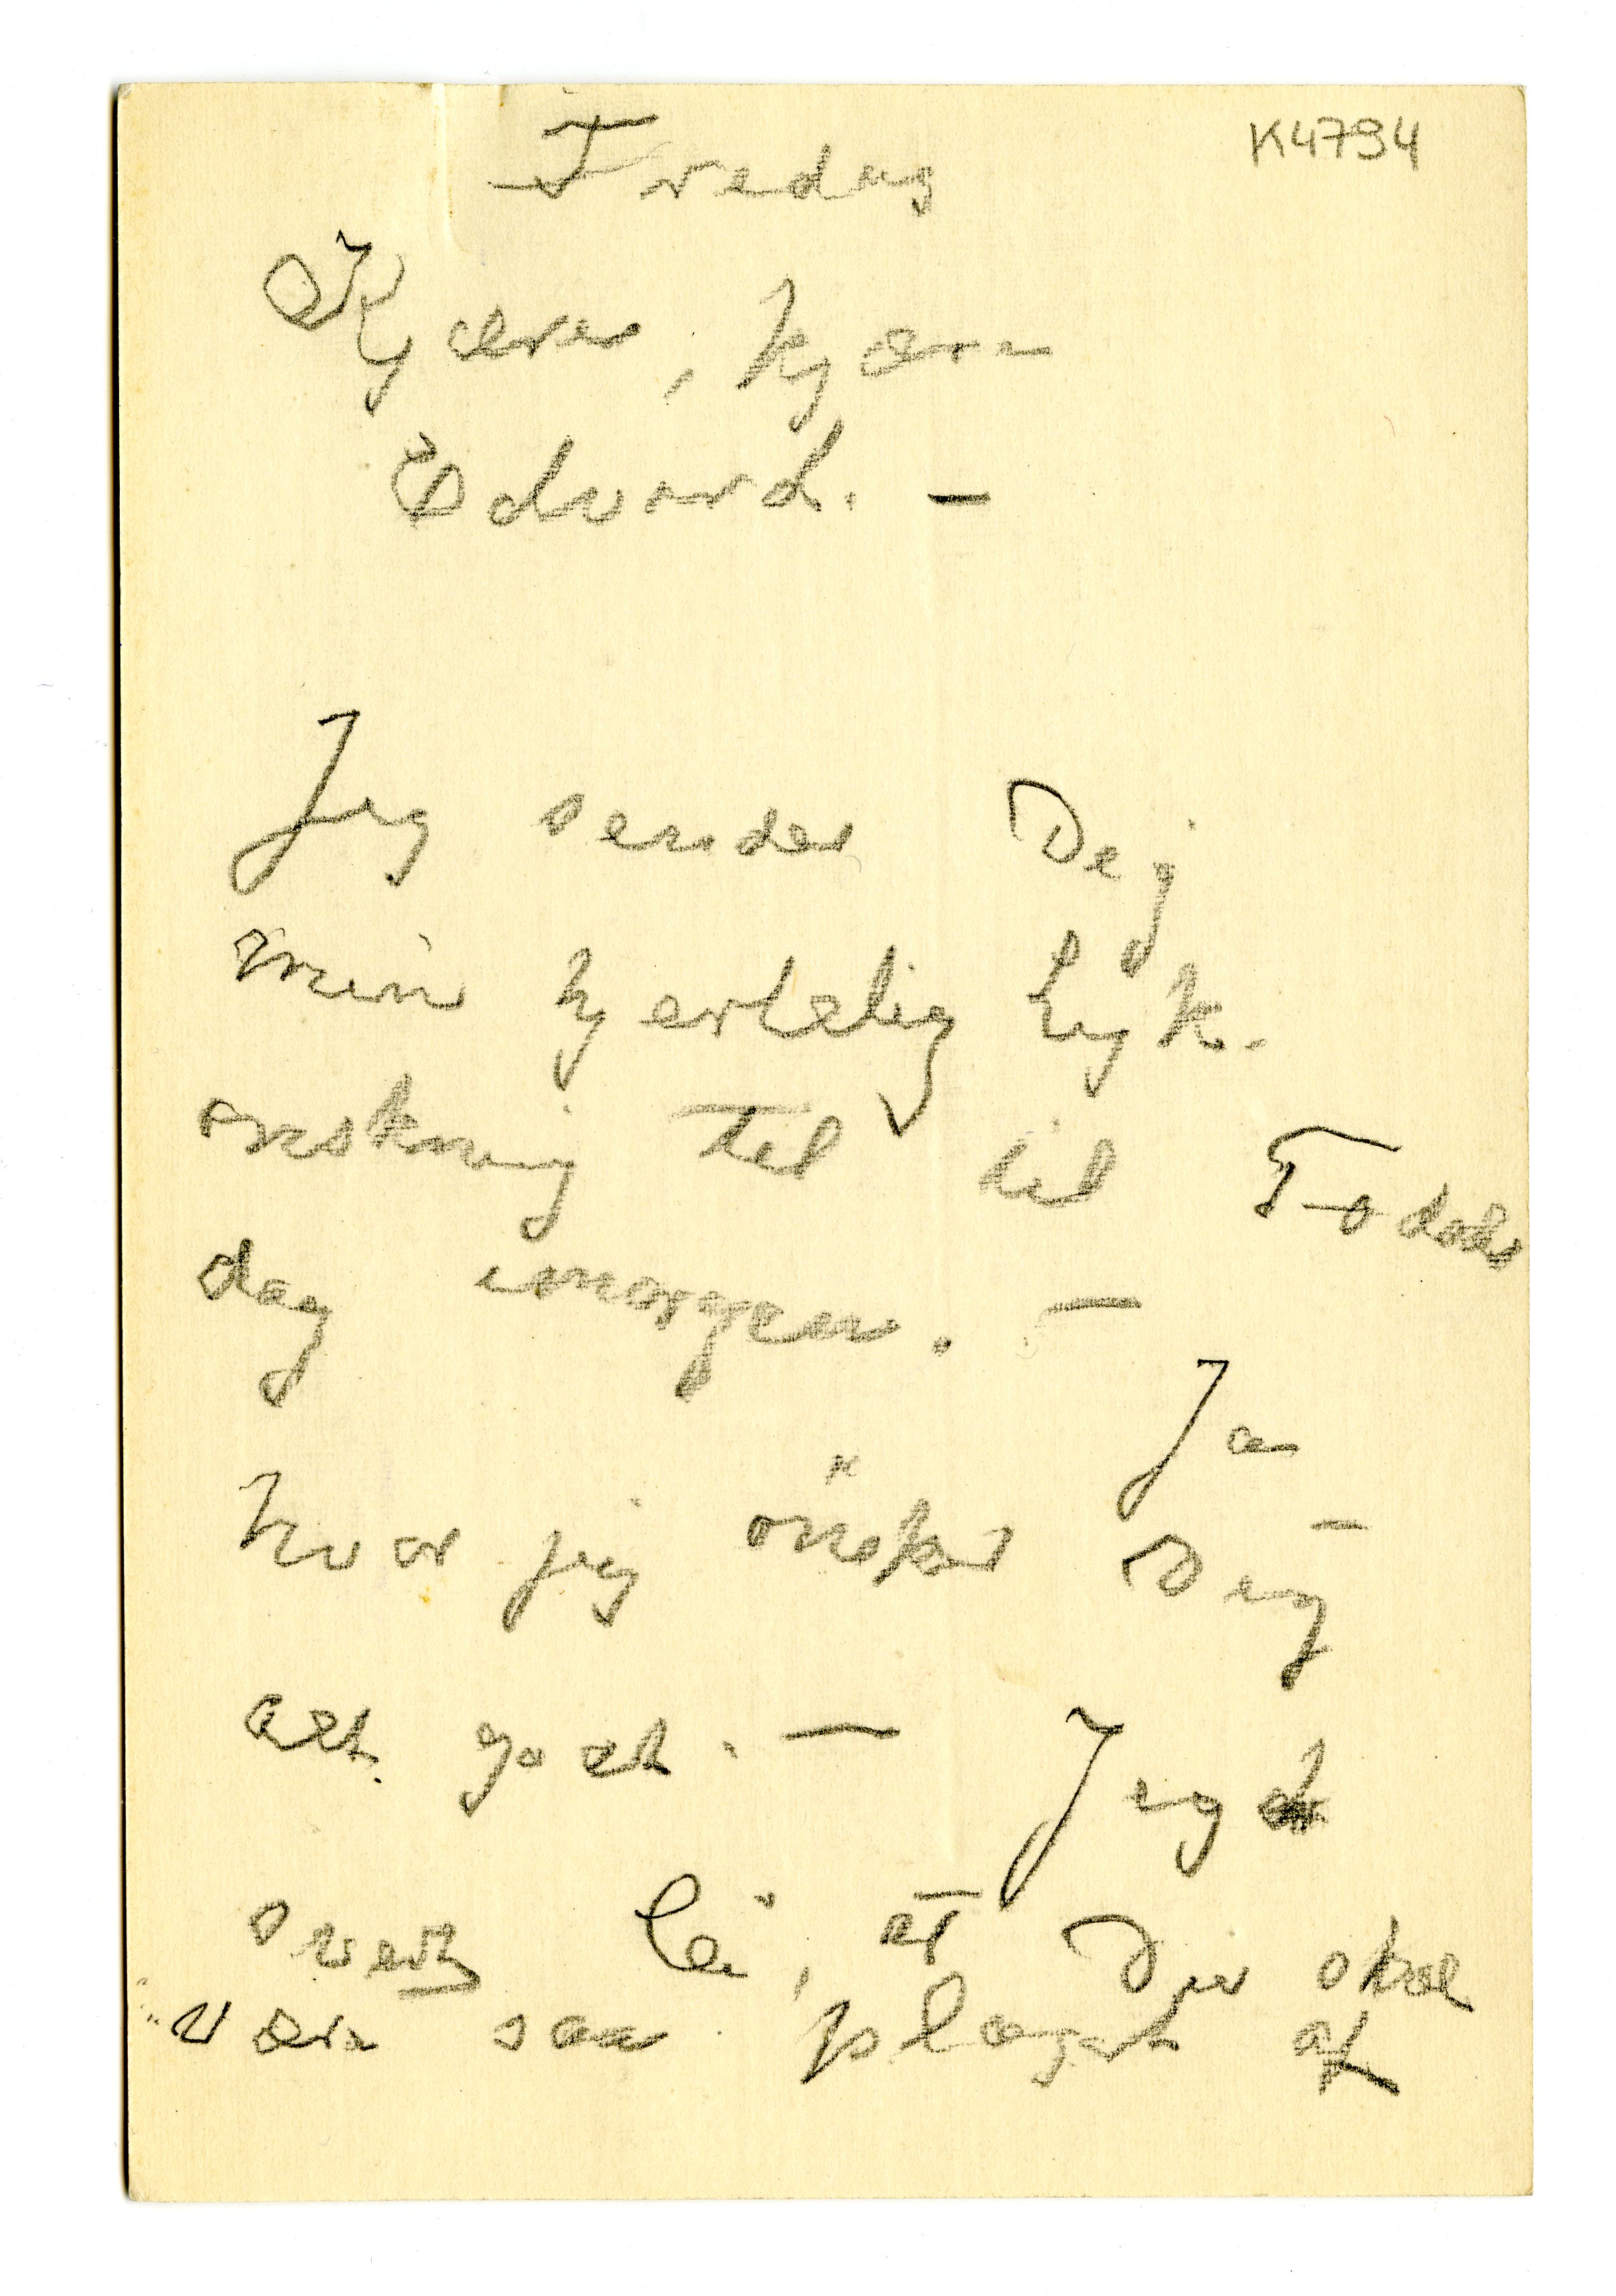 K4794
Fredag
Kjære, kjære
Edvard. —
Jeg sender Dej
min hjertelig Lyk-
ønskning til til Fødsels
dag imorgen. —
Ja
hvor jeg ønsker Deg
alt godt. — Jeg er
svert lei, at Du skal
være saa plaget af